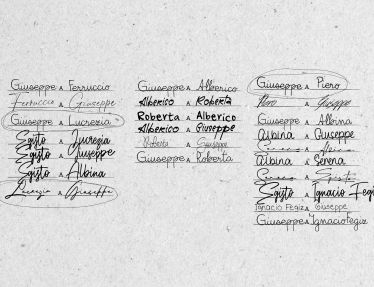 Giuseppe A Ferruccio
Ferruccio A Giuseppe
Giuseppe A Lucrezia
Egisto A Lucrezia
Egisto A Giuseppe
Egisto A Albina
Lucrezia A Giuseppe
Giuseppe A Alberico
Alberico A Roberta
Roberta A Alberico
Alberico A Giuseppe
Roberta A Giuseppe
Giuseppe A Roberta
Giuseppe A Piero
Piero A Giuseppe
Giuseppe A Albina
Albina A Giuseppe
Albina A Serena
Egisto A Ignacio Fegiz
Ignacio Fegiz A Giuseppe
Giuseppe A Ignacio Fegiz